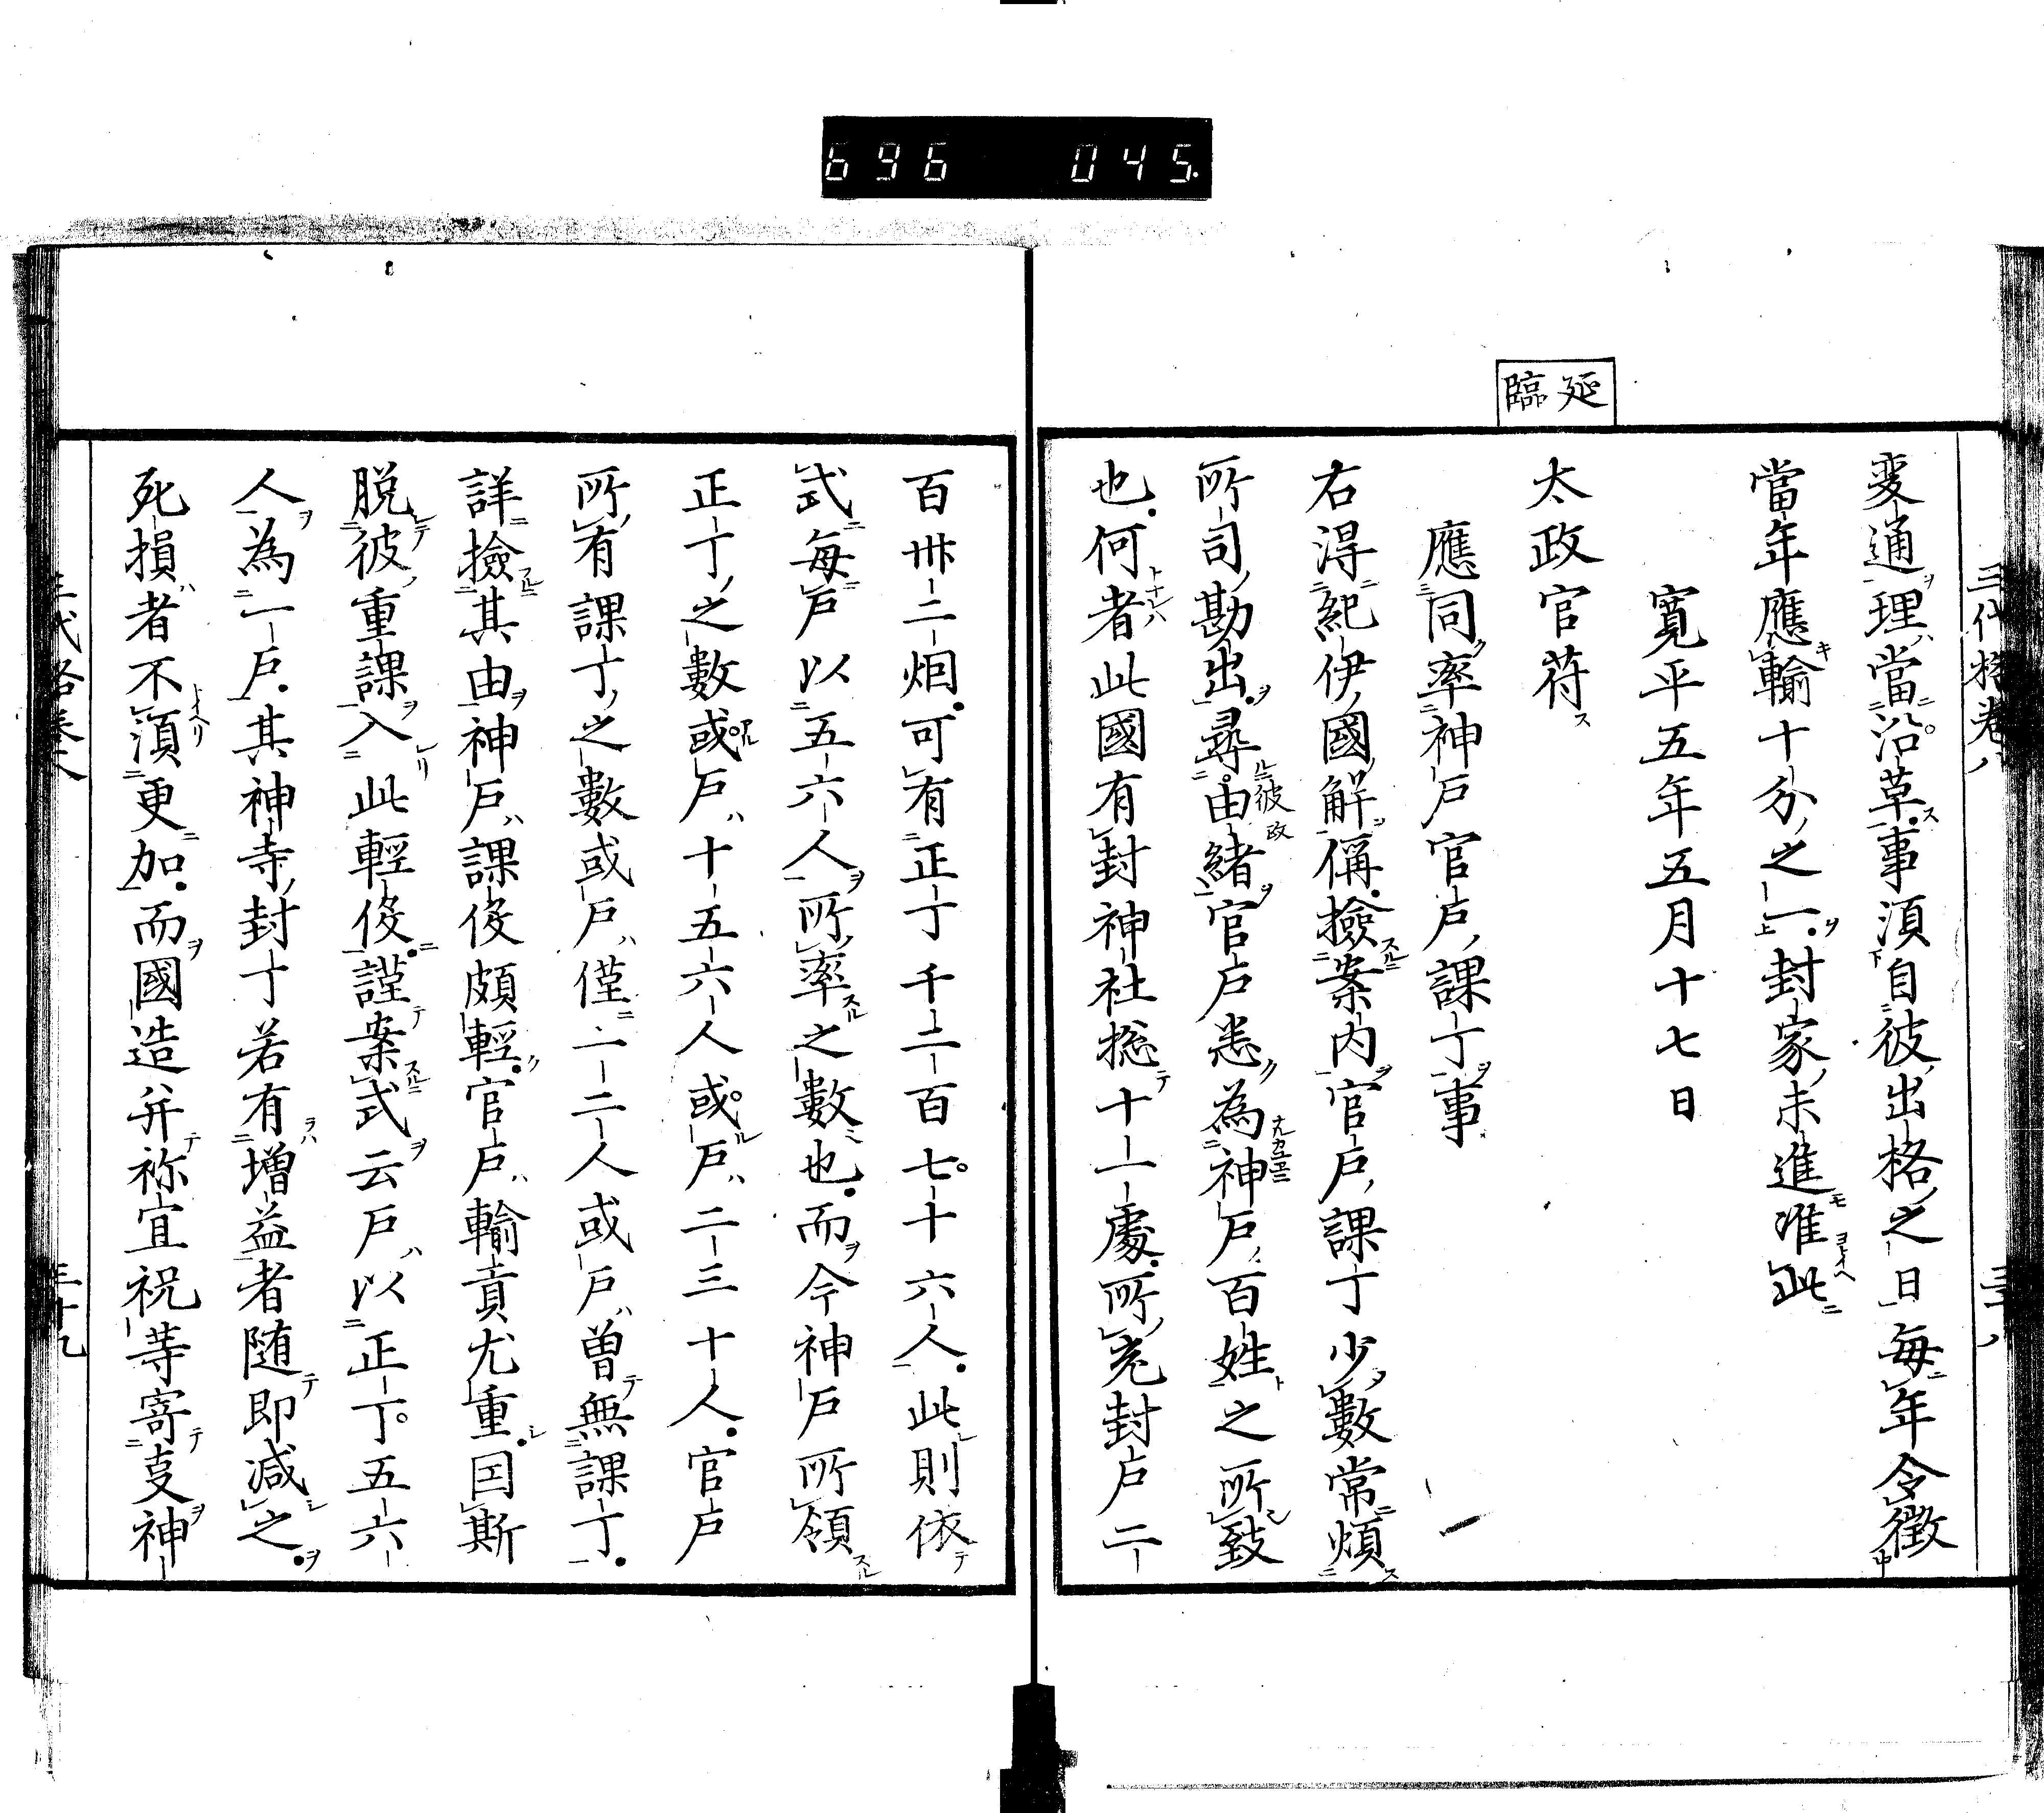 696 045
三代格卷八
三十八
延
臨
変通理當沿革事湏自彼出格之日毎年令徴
當年應輸十分之一封家未進准此
寛平五年五月十七日
太政官苻
應同率神戸官戸課丁事
右得紀伊國解偁撿案内官戸課丁少數常煩
所司勘出尋由緒官戸悉為神戸百姓之所致
彼政
也何者此國有封神社惣十一處所充封戸二
百卅二烟可有正丁千二百七十六人此則依
式毎戸以五六人所率之數也而今神戸所領
正丁之數或戸十五六人或戸二三十人官戸
所有課丁之數或戸僅一二人或戸曽無課丁
詳撿其由神戸課伇頗輕官戸輸貢尤重因斯
脱彼重課入此輕伇謹案式云戸以正丁五六
人為一戸其神寺封丁若有増益者随即減之
死損者不湏更加而國造并祢宜祝等寄事神
三代格卷八
三十九